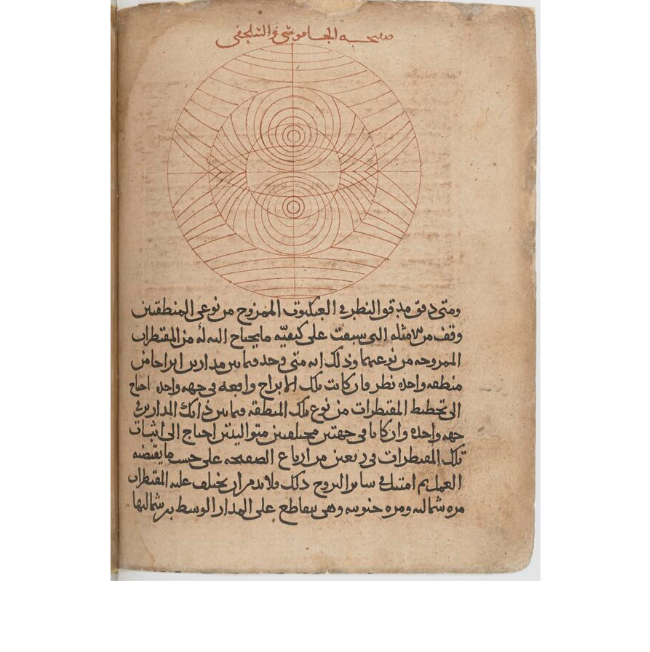 صفيحه الجاموسي والسلحفي
ومتى دقق مدقق النظر في العنكبوت الممزوج من نوعي المنطقتين
وقف من الامثلة التي سبقت على كيفيّه ما يحتاج اليه من المقنطرات
الممزوجه من نوعيهما وذلك انه متى وجد فيما بين مدارين ابراجا من
منطقه واحده نظر فان كانت تلك الابراج واقعه في جهه واحده احتاج
الى تخطيط المقنطرات من نوع تلك المنطقه فيما بين ذانك المدارين في
جهه واحده وان كانا في جهتين مختلفتين متواليتين احتاج الى اثبات
تلك المقنطرات في ربعين من ارباع الصفيحه على حسب ما يقتضيه
العمل ثم امتثل في سائر البروج ذلك ولا بد من ان يختلف عليه المقنطرات
مره شماليه ومره جنوبيه وهي تتقاطع على المدار الاوسط بين شماليها